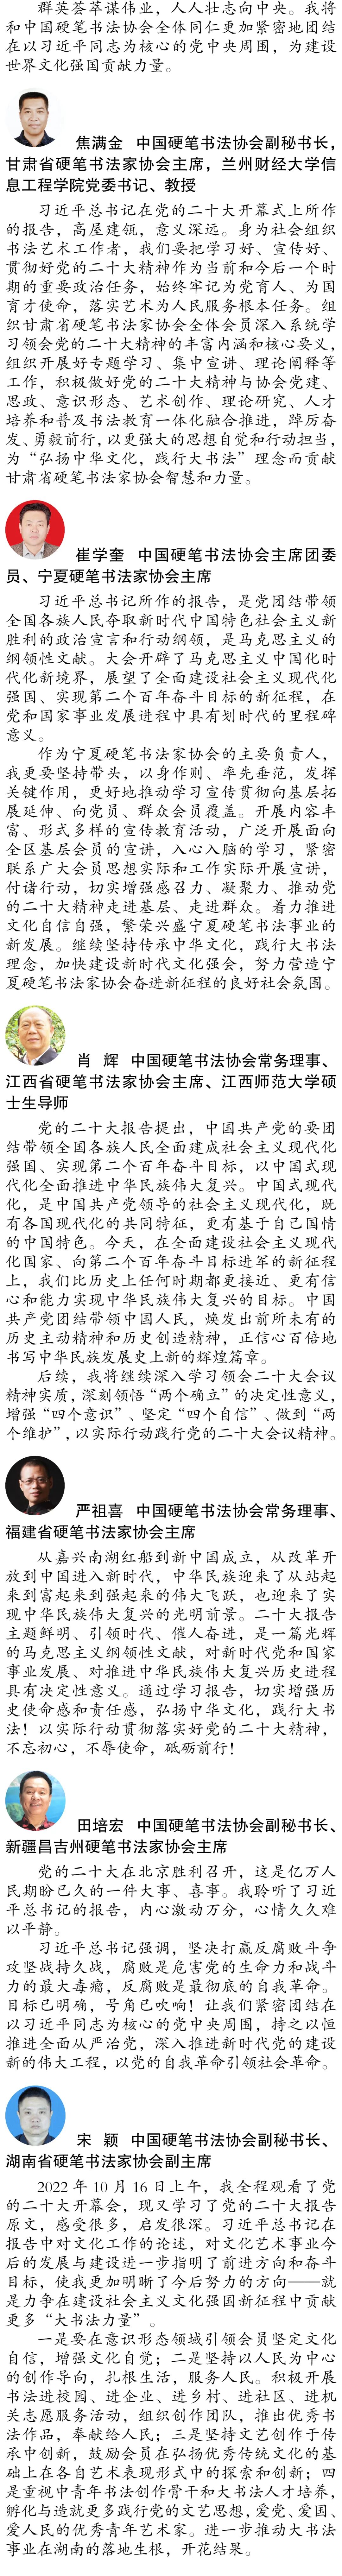 群英荟萃谋伟业，人人壮志向中央。我将
和中国硬笔书法协会全体同仁更加紧密地团结
在以习近平同志为核心的党中央周围，为建设
世界文化强国贡献力量。
焦满金 中国硬笔书法协会副秘书长，
甘肃省硬笔书法家协会主席，兰州财经大学信
息工程学院党委书记、教授
习近平总书记在党的二十大开幕式上所作
的报告，高屋建瓴，意义深远。身为社会组织
书法艺术工作者，我们要把学习好、宣传好、
贯彻好党的二十大精神作为当前和今后一个时
期的重要政治任务，始终牢记为党育人、为国
育才使命，落实艺术为人民服务根本任务。组
织甘肃省硬笔书法家协会全体会员深入系统学
习领会党的二十大精神的丰富内涵和核心要义，
组织开展好专题学习、集中宣讲、理论阐释等
工作，积极做好党的二十大精神与协会党建、
思政、意识形态、艺术创作、理论研究、人才
培养和普及书法教育一体化融合推进，踔厉奋
发、勇毅前行，以更强大的思想自觉和行动担当，
为“弘扬中华文化，践行大书法”理念而贡献
甘肃省硬笔书法家协会智慧和力量。
崔学奎 中国硬笔书法协会主席团委
员、宁夏硬笔书法家协会主席
习近平总书记所作的报告，是党团结带领
全国各族人民夺取新时代中国特色社会主义新
胜利的政治宣言和行动纲领，是马克思主义的
纲领性文献。大会开辟了马克思主义中国化时
代化新境界，展望了全面建设社会主义现代化
强国、实现第二个百年奋斗目标的新征程，在
党和国家事业发展进程中具有划时代的里程碑
意义。
作为宁夏硬笔书法家协会的主要负责人，
我更要坚持带头，以身作则、率先垂范，发挥
关键作用，更好地推动学习宣传贯彻向基层拓
展延伸、向党员、群众会员覆盖。开展内容丰
富、形式多样的宣传教育活动，广泛开展面向
全区基层会员的宣讲，入心入脑的学习，紧密
联系广大会员思想实际和工作实际开展宣讲，
付诸行动，切实增强感召力、凝聚力、推动党
的二十大精神走进基层、走进群众。着力推进
文化自信自强，繁荣兴盛宁夏硬笔书法事业的
新发展。继续坚持传承中华文化，践行大书法
理念，加快建设新时代文化强会，努力营造宁
夏硬笔书法家协会奋进新征程的良好社会氛围。
肖 辉 中国硬笔书法协会常务理事、
江西省硬笔书法家协会主席、江西师范大学硕
士生导师
党的二十大报告提出，中国共产党的要团
结带领全国各族人民全面建成社会主义现代化
强国、实现第二个百年奋斗目标，以中国式现
代化全面推进中华民族伟大复兴。中国式现代
化，是中国共产党领导的社会主义现代化，既
有各国现代化的共同特征，更有基于自己国情
的中国特色。今天，在全面建设社会主义现代
化国家、向第二个百年奋斗目标进军的新征程
上，我们比历史上任何时期都更接近、更有信
心和能力实现中华民族伟大复兴的目标。中国
共产党团结带领中国人民，焕发出前所未有的
历史主动精神和历史创造精神，正信心百倍地
书写中华民族发展史上新的辉煌篇章。
后续，我将继续深入学习领会二十大会议
精神实质，深刻领悟“两个确立”的决定性意义，
增强“四个意识”、坚定“四个自信”、做到“两
个维护”，以实际行动践行党的二十大会议精神。
严祖喜 中国硬笔书法协会常务理事、
福建省硬笔书法家协会主席
从嘉兴南湖红船到新中国成立，从改革开
放到中国进入新时代，中华民族迎来了从站起
来到富起来到强起来的伟大飞跃，也迎来了实
现中华民族伟大复兴的光明前景。二十大报告
主题鲜明、引领时代、催人奋进，是一篇光辉
的马克思主义纲领性文献，对新时代党和国家
事业发展、对推进中华民族伟大复兴历史进程
具有决定性意义。通过学习报告，切实增强历
史使命感和责任感，弘扬中华文化，践行大书
法！以实际行动贯彻落实好党的二十大精神，
不忘初心，不辱使命，砥砺前行！
田培宏 中国硬笔书法协会副秘书长、
新疆昌吉州硬笔书法家协会主席
党的二十大在北京胜利召开，这是亿万人
民期盼已久的一件大事、喜事。我聆听了习近
平总书记的报告，内心激动万分，心情久久难
以平静。
习近平总书记强调，坚决打赢反腐败斗争
攻坚战持久战，腐败是危害党的生命力和战斗
力的最大毒瘤，反腐败是最彻底的自我革命。
目标已明确，号角已吹响！让我们紧密团结在
以习近平同志为核心的党中央周围，持之以恒
推进全面从严治党，深入推进新时代党的建设
新的伟大工程，以党的自我革命引领社会革命。
宋 颖 中国硬笔书法协会副秘书长、
湖南省硬笔书法家协会副主席
2022 年 10 月 16 日上午，我全程观看了党
的二十大开幕会，现又学习了党的二十大报告
原文，感受很多，启发很深。习近平总书记在
报告中对文化工作的论述，对文化艺术事业今
后的发展与建设进一步指明了前进方向和奋斗
目标，使我更加明晰了今后努力的方向——就
是力争在建设社会主义文化强国新征程中贡献
更多“大书法力量”。
一是要在意识形态领域引领会员坚定文化
自信，增强文化自觉；二是坚持以人民为中心
的创作导向，扎根生活，服务人民。积极开展
书法进校园、进企业、进乡村、进社区、进机
关志愿服务活动，组织创作团队，推出优秀书
法作品，奉献给人民；三是坚持文艺创作于传
承中创新，鼓励会员在弘扬优秀传统文化的基
础上在各自艺术表现形式中的探索和创新；四
是重视中青年书法创作骨干和大书法人才培养，
孵化与造就更多践行党的文艺思想，爱党、爱国、
爱人民的优秀青年艺术家。进一步推动大书法
事业在湖南的落地生根，开花结果。